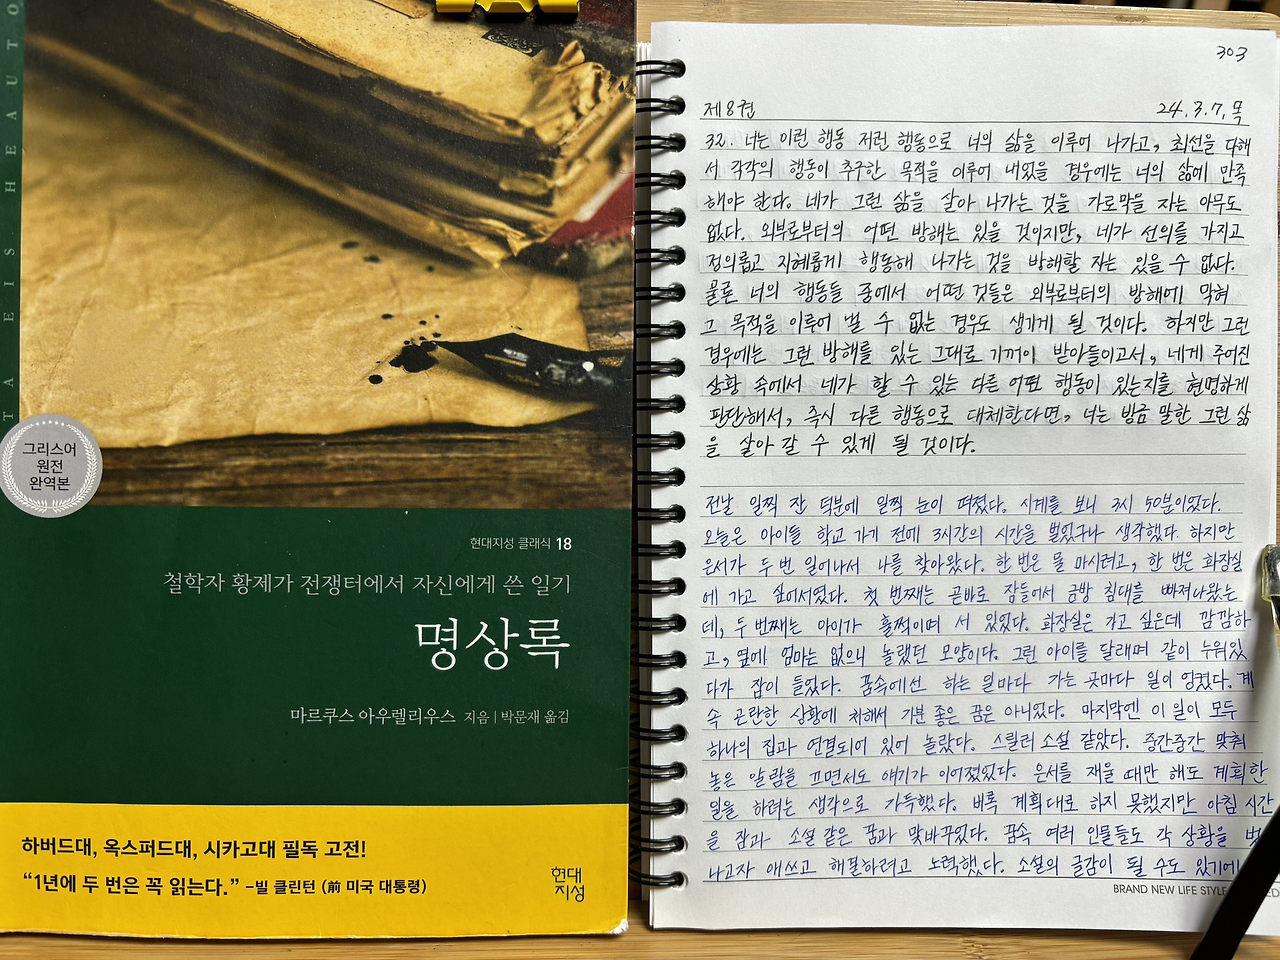 TAEISHEAUTO
그리스어
원전
완역본
현대지성 클래식 18
철학자 황제가 전쟁터에서 자신에게 쓴 일기
명상록
마르쿠스 아우렐리우스 지음 | 박문재 옮김
하버드대, 옥스퍼드대, 시카고대 필독 고전!
“1년에 두 번은 꼭 읽는다.” –빌 클린턴 (前 미국 대통령)
현대
지성
303
제8권 24.3.7.목
32. 너는 이런 행동 저런 행동으로 너의 삶을 이루어 나가고, 최선을 다해
서 각각의 행동이 추구한 목적을 이루어 내었을 경우에는 너의 삶에 만족
해야 한다. 네가 그런 삶을 살아 나가는 것을 가로막을 자는 아무도
없다. 외부로부터의 어떤 방해는 있을 것이지만, 네가 선의를 가지고
정의롭고 지혜롭게 행동해 나가는 것을 방해할 자는 있을 수 없다.
물론 너의 행동들 중에서 어떤 것들은 외부로부터의 방해에 막혀
그 목적을 이루어 낼 수 없는 경우도 생기게 될 것이다. 하지만 그런
경우에는 그런 방해를 있는 그대로 기꺼이 받아들이고서, 네게 주어진
상황 속에서 네가 할 수 있는 다른 어떤 행동이 있는지를 현명하게
판단해서, 즉시 다른 행동으로 대체한다면, 너는 방금 말한 그런 삶
을 살아 갈 수 있게 될 것이다.
전날 일찍 잔 덕분에 일찍 눈이 떠졌다. 시계를 보니 3시 50분이었다.
오늘은 아이들 학교 가기 전에 3시간의 시간을 벌었구나 생각했다. 하지만
은서가 두 번 일어나서 나를 찾아왔다. 한 번은 물 마시려고, 한 번은 화장실
에 가고 싶어서였다. 첫 번째는 곧바로 잠들어서 금방 침대를 빠져나왔는
데, 두 번째는 아이가 훌쩍이며 서 있었다. 화장실은 가고 싶은데 깜깜하
고, 옆에 엄마는 없으니 놀랬던 모양이다. 그런 아이를 달래며 같이 누워있
다가 잠이 들었다. 꿈속에선 하는 일마다 가는 곳마다 일이 엉켰다. 계
속 곤란한 상황에 처해서 기분 좋은 꿈은 아니었다. 마지막엔 이 일이 모두
하나의 집과 연결되어 있어 놀랐다. 스릴러 소설 같았다. 중간중간 맞춰
놓은 알람을 끄면서도 얘기가 이어졌었다. 은서를 재울 때만 해도 계획한
일을 하려는 생각으로 가득했다. 비록 계획대로 하지 못했지만 아침 시간
을 잠과 소설 같은 꿈과 맞바꾸었다. 꿈속 여러 인물들도 각 상황을
나고자 애쓰고 해결하려고 노력했다. 소설의 글감이 될 수도 있기에
BRAND NEW LIFE STYLE